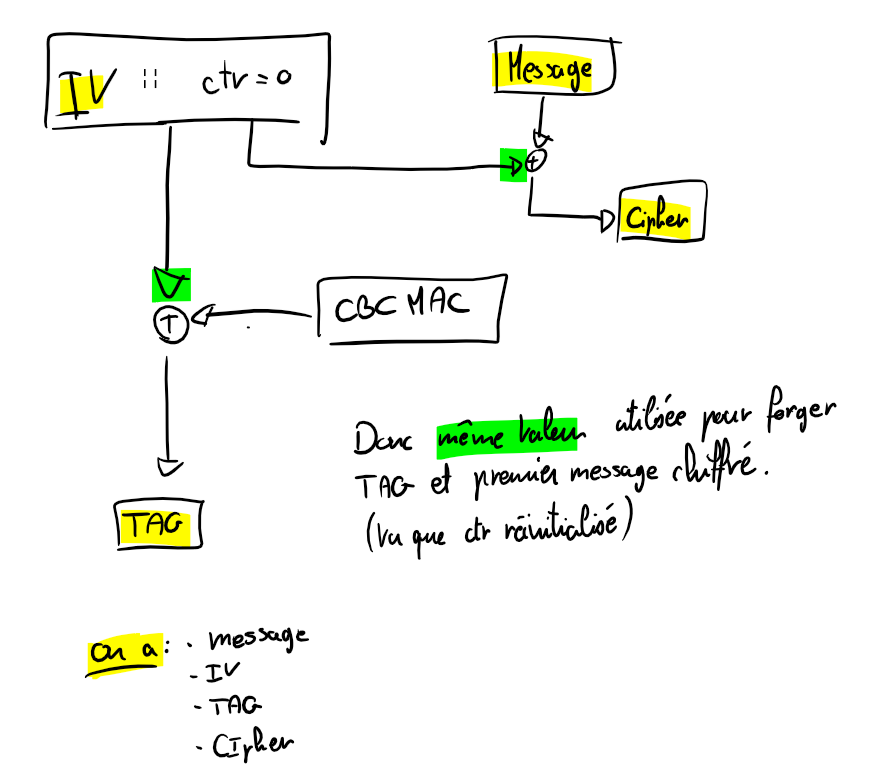 IV || ctr = 0
Message
Cipher
CBC MAC
TAG
Donc même valeur utilisée pour forger
TAG et premier message chiffré.
(Vu que ctr réinitialisé)
On a :
- message
- IV
- TAG
- CIpher